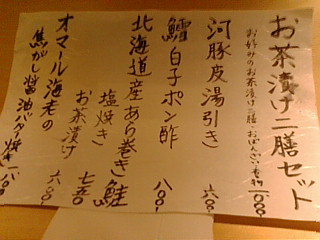 お茶漬け二膳セット
お好みのお茶漬け二膳・おばんざい・香物 一〇〇〇
河豚皮湯引き 六〇〇
鱈白子ポン酢 八〇〇
北海道産あら巻き鮭
塩焼き
お茶漬け 七五〇
オマール海老の 六〇〇
焦がし醤油バター焼き 一八〇〇